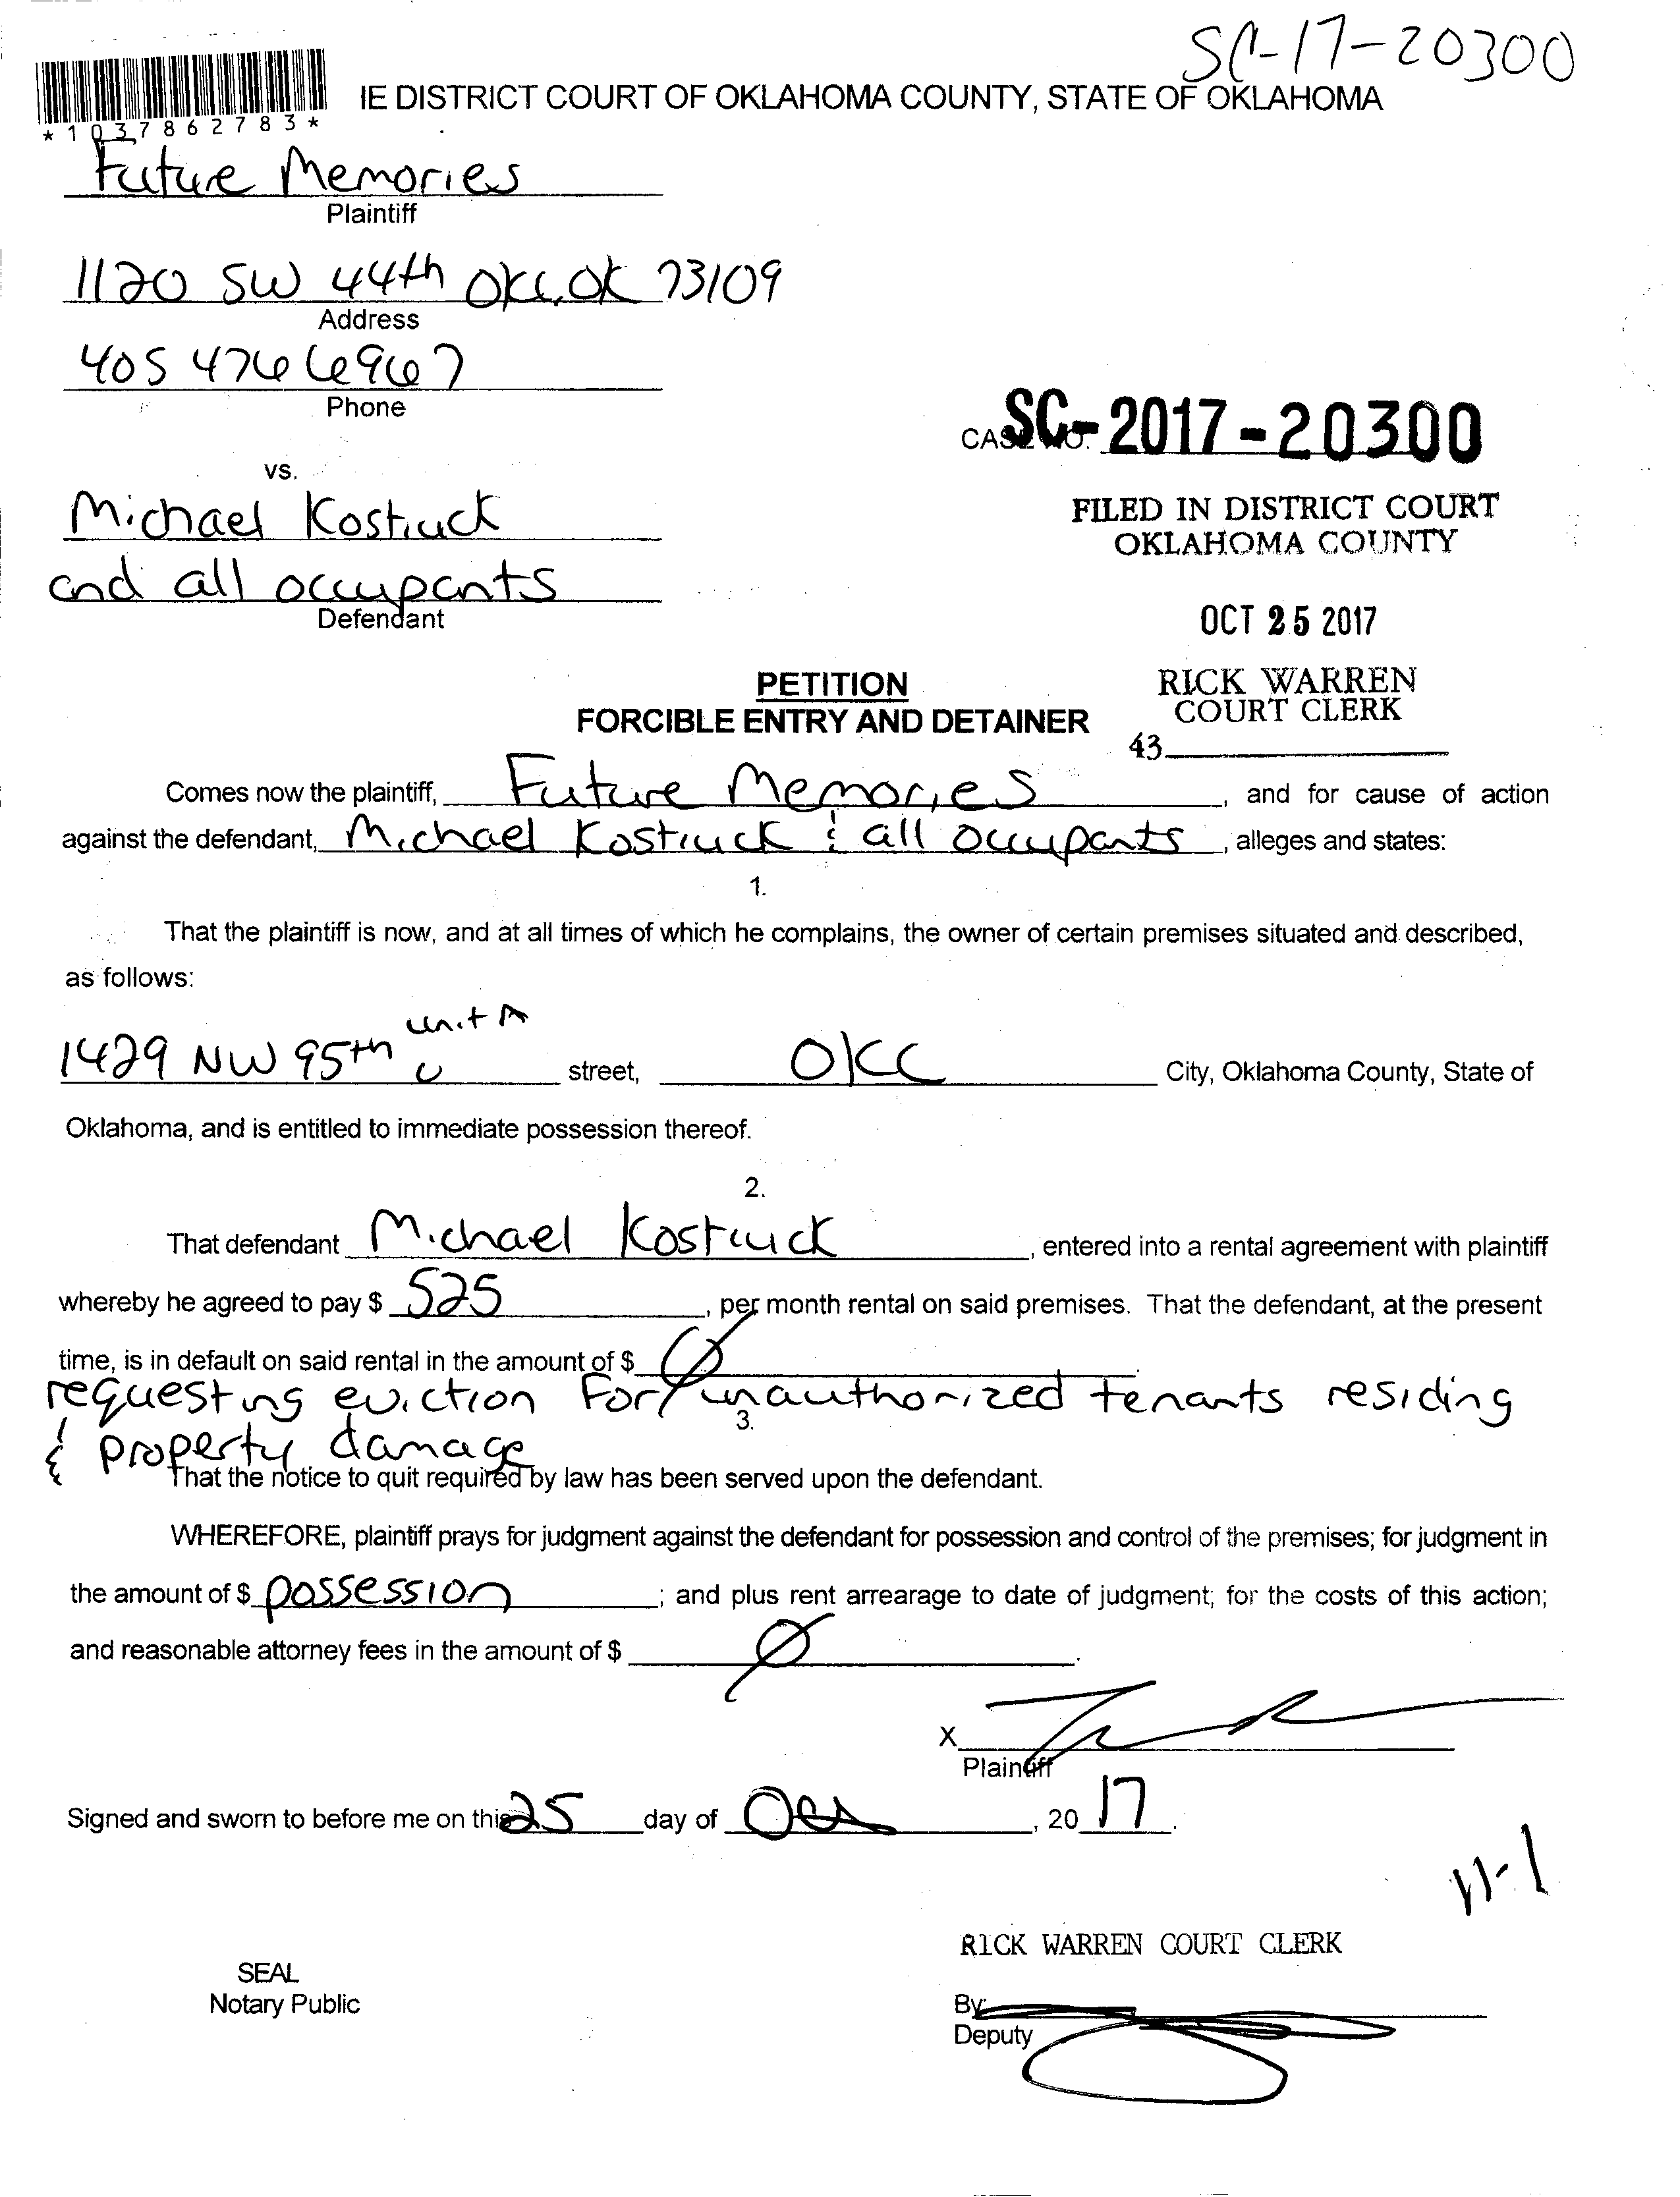 SC-17-20300
IE DISTRICT COURT OF OKLAHOMA COUNTY, STATE OF OKLAHOMA
* 1 0 3 7 8 6 2 7 8 3 *
Future Memories
Plaintiff
1120 SW 44th OKC, OK 73109
Address
405 476 6967
Phone
CASE NO. SC-2017-20300
vs.
Michael Kostiuck
FILED IN DISTRICT COURT
OKLAHOMA COUNTY
and all occupants
Defendant
OCT 25 2017
PETITION
RICK WARREN
COURT CLERK
FORCIBLE ENTRY AND DETAINER
43
Comes now the plaintiff, Future Memories, and for cause of action
against the defendant, Michael Kostiuck & all occupants, alleges and states:
1.
That the plaintiff is now, and at all times of which he complains, the owner of certain premises situated and described,
as follows:
unit A
1429 NW 95th street, OKC City, Oklahoma County, State of
Oklahoma, and is entitled to immediate possession thereof.
2.
That defendant Michael Kostiuck, entered into a rental agreement with plaintiff
whereby he agreed to pay $ 525, per month rental on said premises. That the defendant, at the present
time, is in default on said rental in the amount of $ Ø.
requesting eviction For unauthorized tenants residing
3.
& property damage
That the notice to quit required by law has been served upon the defendant.
WHEREFORE, plaintiff prays for judgment against the defendant for possession and control of the premises; for judgment in
the amount of $ possession; and plus rent arrearage to date of judgment; for the costs of this action;
and reasonable attorney fees in the amount of $ Ø.
X
Plaintiff
Signed and sworn to before me on this 25 day of Oct, 20 17.
11-1
RICK WARREN COURT CLERK
SEAL
Notary Public
By:
Deputy